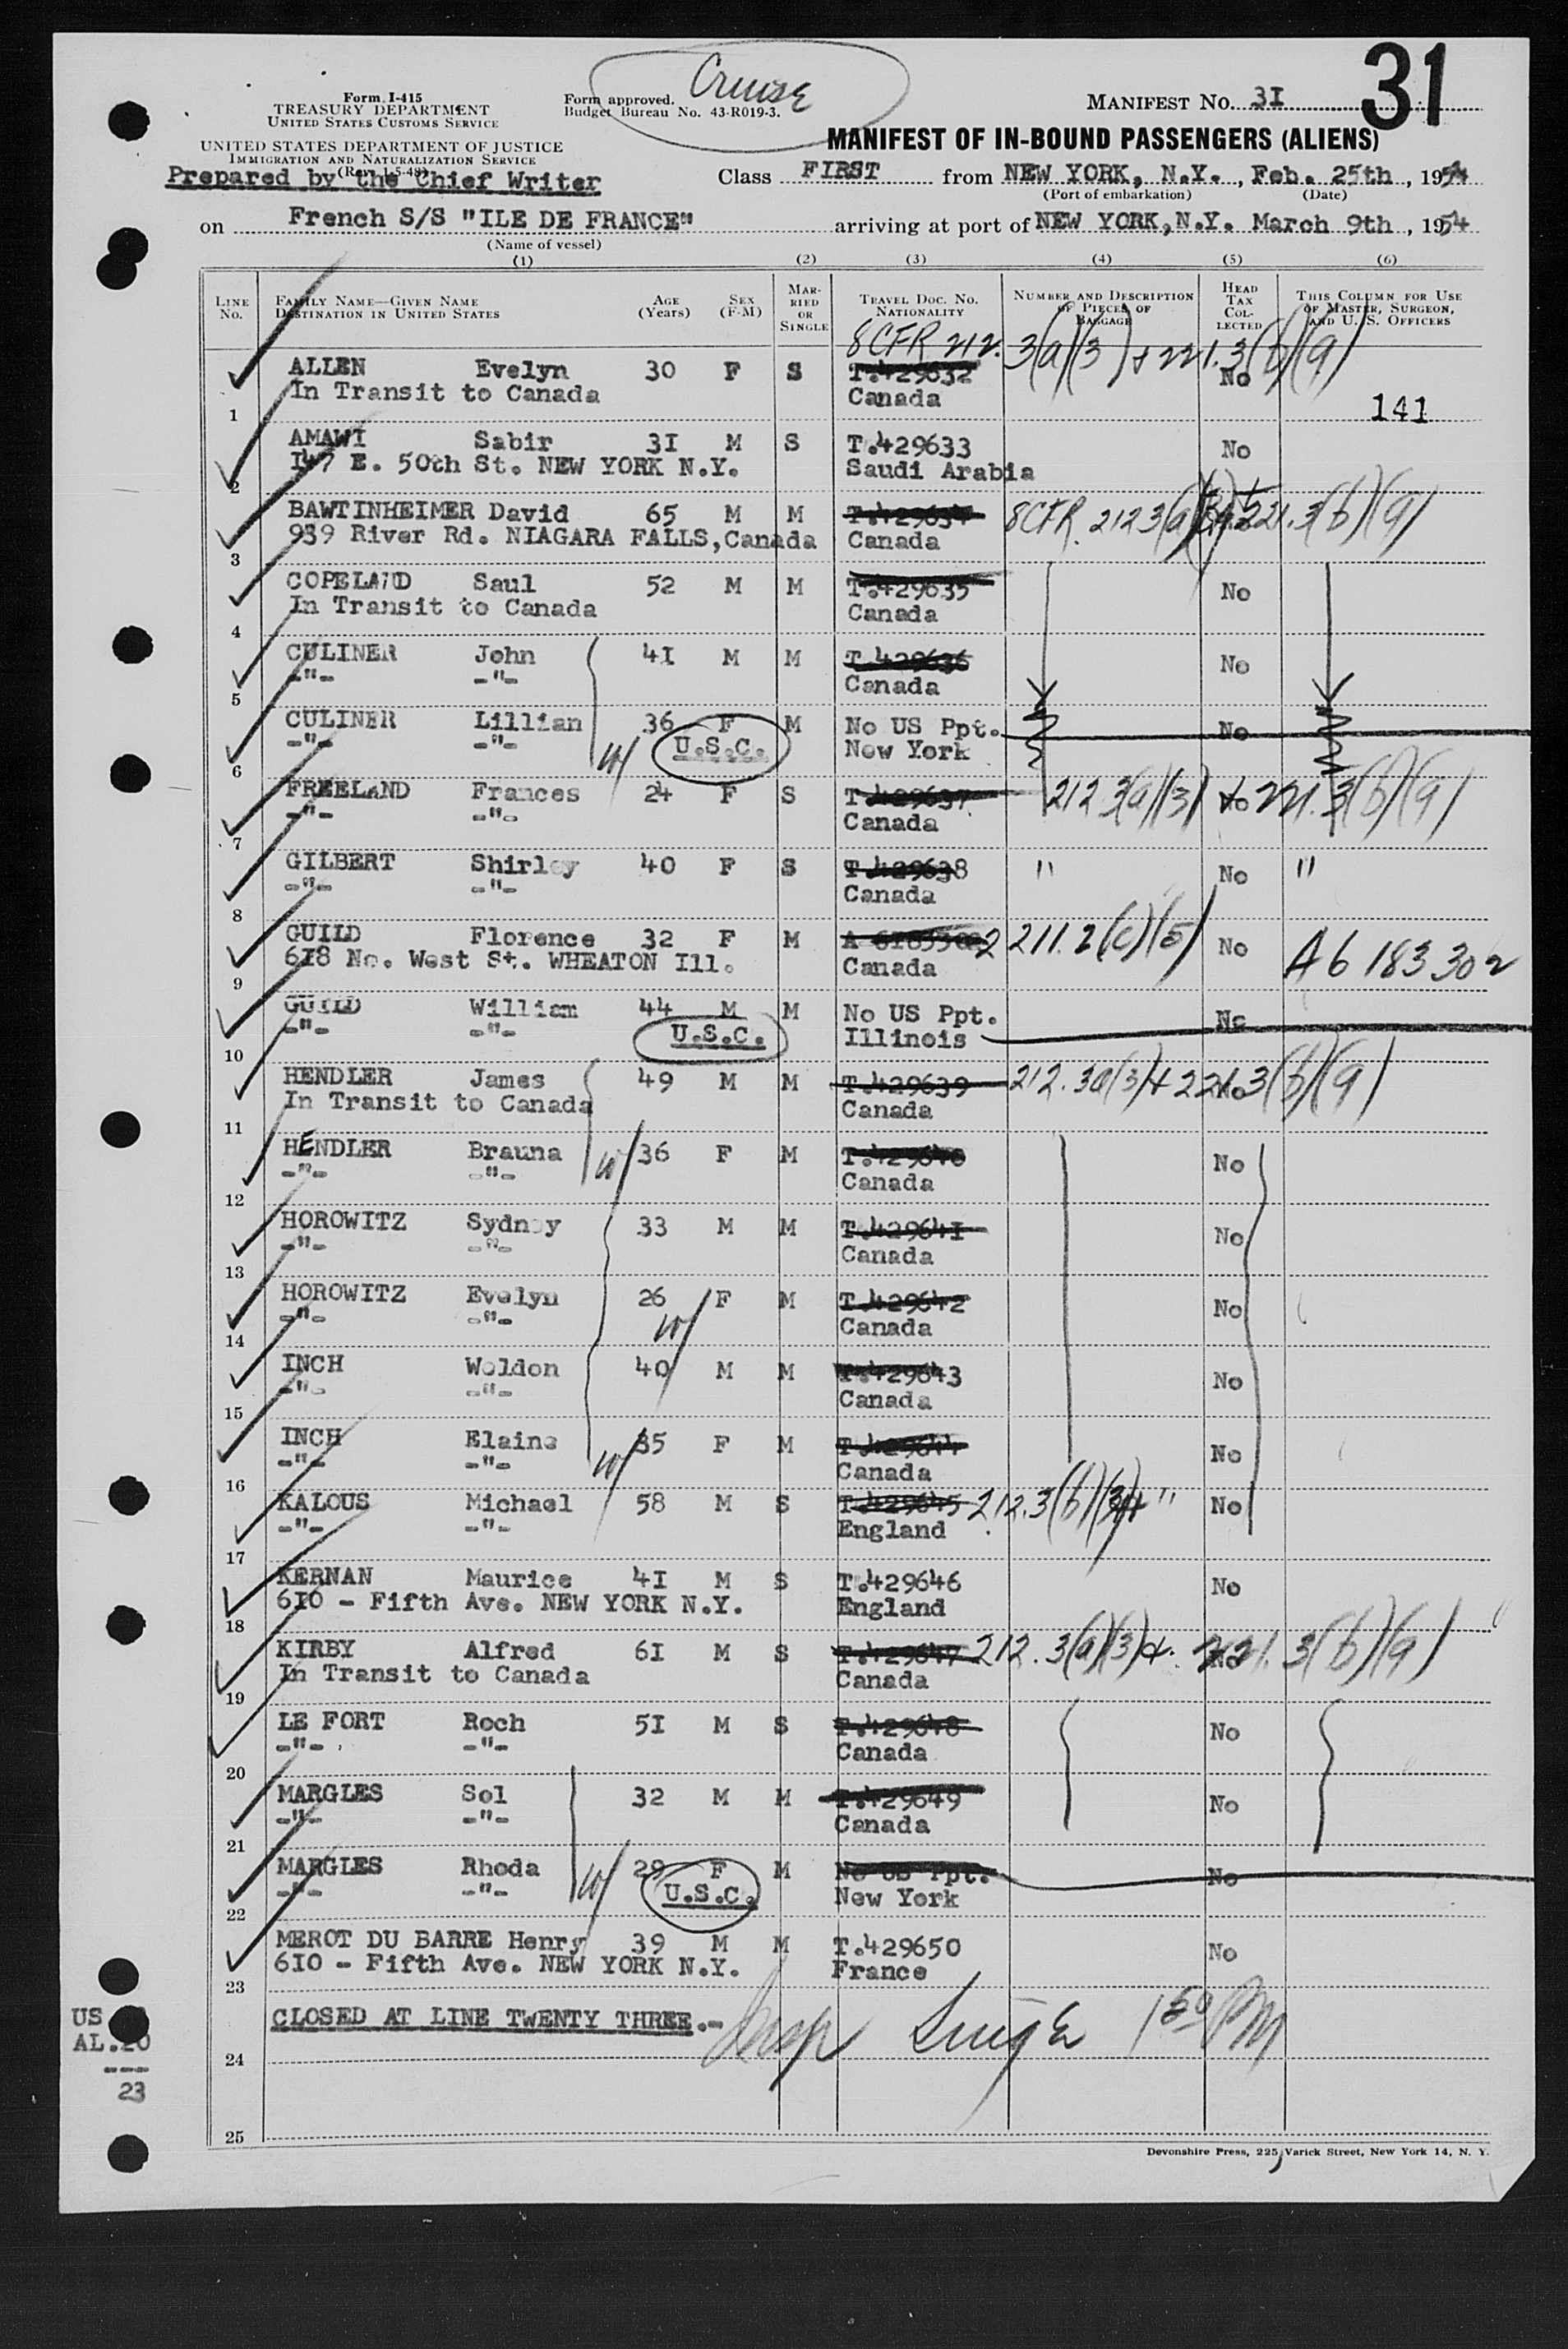 Cruise
31
Form I-415
TREASURY DEPARTMENT
UNITED STATES CUSTOMS SERVICE
Form approved.
Budget Bureau No. 43-R019-3.
MANIFEST NO. 3I
UNITED STATES DEPARTMENT OF JUSTICE
IMMIGRATION AND NATURALIZATION SERVICE
(Rev. 1-5-48)
MANIFEST OF IN-BOUND PASSENGERS (ALIENS)
Prepared by the Chief Writer
Class FIRST from NEW YORK, N.Y., Feb. 25th, 1954
(Port of embarkation) (Date)
on French S/S "ILE DE FRANCE" arriving at port of NEW YORK,N.Y. March 9th, 1954
(Name of vessel)
(1) (2) (3) (4) (5) (6)
LINE NO. FAMILY NAME—GIVEN NAME DESTINATION IN UNITED STATES AGE (Years) SEX (F-M) MARRIED OR SINGLE TRAVEL DOC. NO. NATIONALITY NUMBER AND DESCRIPTION OF PIECES OF BAGGAGE HEAD TAX COLLECTED THIS COLUMN FOR USE OF MASTER, SURGEON, AND U. S. OFFICERS
8CFR 212. 3(a)(3) + 221.3(b)(9)
ALLEN Evelyn 30 F S T.429632 No
In Transit to Canada Canada
1 141
AMAWI Sabir 3I M S T.429633 No
I47 E. 50th St. NEW YORK N.Y. Saudi Arabia
2
BAWTINHEIMER David 65 M M T.429634 8CFR. 212 3(a)(3) + 221.3(b)(9)
939 River Rd. NIAGARA FALLS,Canada Canada
3
COPELAND Saul 52 M M T.429635 No
In Transit to Canada Canada
4
CULINER John 4I M M T.429636 No
-"- -"- Canada
5
CULINER Lillian 36 F M No US Ppt. No
-"- -"- w/ U.S.C. New York
6
FREELAND Frances 24 F S T.429637 212 3(a)(3) No + 221.3(b)(9)
-"- -"- Canada
7
GILBERT Shirley 40 F S T.429638 " No "
-"- -"- Canada
8
GUILD Florence 32 F M A 6183302 211.2(c)(5) No A6 183 302
6I8 No. West St. WHEATON Ill. Canada
9
GUILD William 44 M M No US Ppt. No
-"- -"- U.S.C. Illinois
10
HENDLER James 49 M M T.429639 212.3a(3)+221.3(b)(9) No
In Transit to Canada Canada
11
HENDLER Brauna w/ 36 F M T.429640 No
-"- -"- Canada
12
HOROWITZ Sydney 33 M M T.42964I No
-"- -"- Canada
13
HOROWITZ Evelyn 26 F M T.429642 No
-"- -"- w/ Canada
14
INCH Weldon 40 M M T.429643 No
-"- -"- Canada
15
INCH Elaine 35 F M T.429644 No
-"- -"- w/ Canada
16
KALOUS Michael 58 M S T.429645 212.3(b)(3)+ " No
-"- -"- England
17
KERNAN Maurice 4I M S T.429646 No
6I0 - Fifth Ave. NEW YORK N.Y. England
18
KIRBY Alfred 6I M S T.429647 212.3(a)(3)+. 221.3(b)(9) No
In Transit to Canada Canada
19
LE FORT Roch 5I M S T.429648 No
-"- -"- Canada
20
MARGLES Sol 32 M M T.429649 No
-"- -"- Canada
21
MARGLES Rhoda w/ 29 F M No US Ppt. No
-"- -"- U.S.C. New York
22
MEROT DU BARRE Henry 39 M M T.429650 No
6IO - Fifth Ave. NEW YORK N.Y. France
23
CLOSED AT LINE TWENTY THREE.- Insp 1 50 PM
24
US
AL.20
---
23
25
Devonshire Press, 225 Varick Street, New York 14, N. Y.